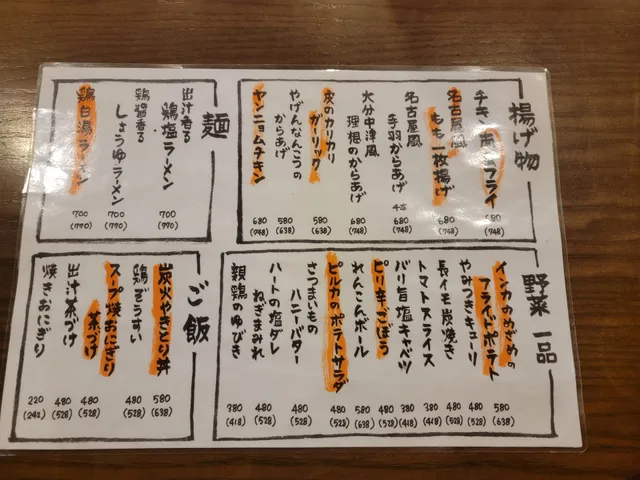 揚げ物
チキン南蛮フライ
680
(748)
名古屋風
もも一枚揚げ
680
(748)
名古屋風
手羽からあげ
4本
680
(748)
大分中津風
理想のからあげ
680
(748)
皮のカリカリ
ガーリック
580
(638)
やげんなんこつの
からあげ
580
(638)
ヤンニョムチキン
680
(748)
麺
出汁香る
鶏塩ラーメン
700
(770)
鶏醤香る
しょうゆラーメン
700
(770)
鶏白湯ラーメン
700
(770)
野菜一品
インカのめざめの
フライドポテト
580
(638)
やみつきキューリ
480
(528)
長イモ炭焼き
480
(528)
トマトスライス
380
(418)
バリ旨塩キャベツ
380
(418)
ピリ辛ごぼう
480
(528)
れんこんボール
580
(638)
ピルカのポテトサラダ
480
(528)
さつまいもの
ハニーバター
480
(528)
ハートの塩ダレ
ねぎまみれ
480
(528)
親鶏のゆびき
380
(418)
ご飯
炭火やきとり丼
580
(638)
鶏ぞうすい
480
(528)
スープ焼おにぎり
茶づけ
480
(528)
出汁茶づけ
480
(528)
焼きおにぎり
220
(242)